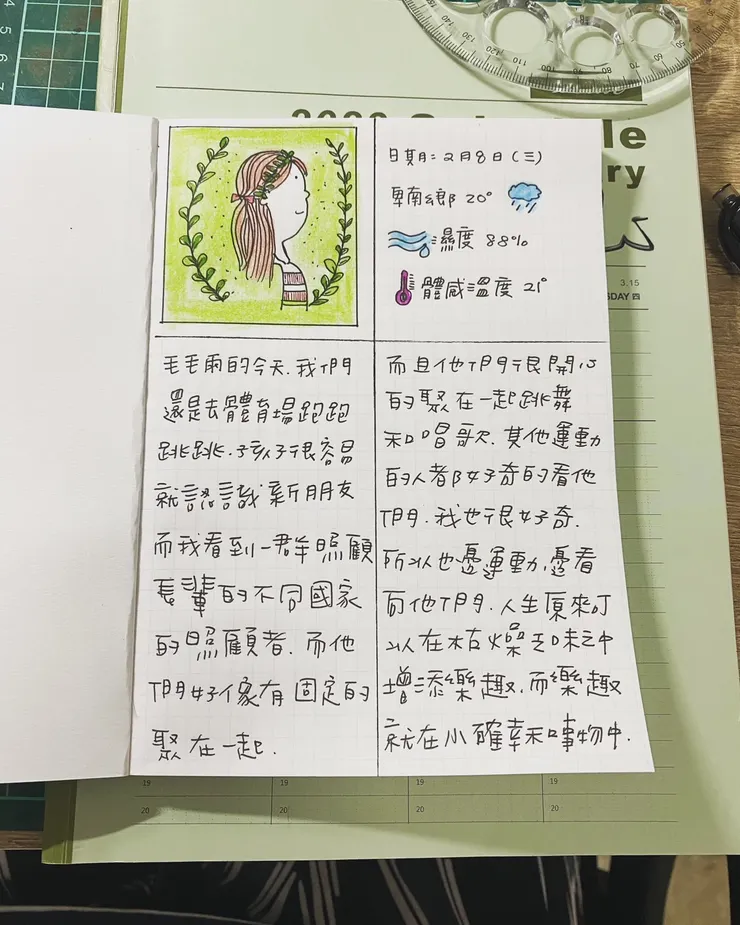 日期: 2月8日(三)
卑南鄉 20°
濕度 88%
體感溫度 21°
毛毛雨的今天.我們
還是去體育場跑跑
跳跳.孩子很容易
就認識新朋友
而我看到一群照顧
長輩的不同國家
的照顧者.而他
們好像有固定的
聚在一起.
而且他們很開心
的聚在一起跳舞
和唱歌.其他運動
的人都好奇的看他
們.我也很好奇.
所以也邊運動,邊看
向他們.人生原來可
以在枯燥乏味之中
增添樂趣.而樂趣
就在小確幸和事物中.
3.15
DAY 四
19
19
19
19
20
20
20
20